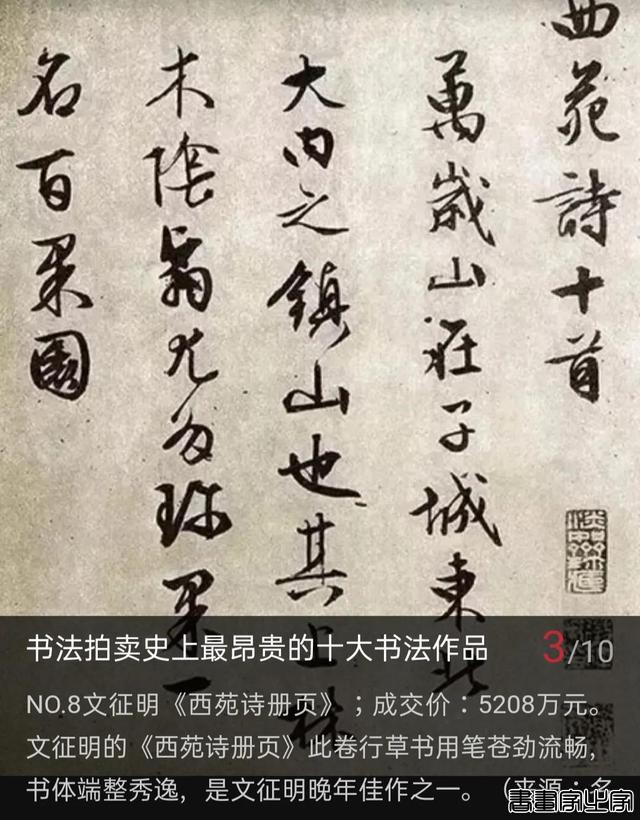 西苑詩十首
萬歲山在子城東北
大内之鎮山也其上林
木陰翳尤多珍果一
名百果園
书法拍卖史上最昂贵的十大书法作品
3/10
NO.8文征明《西苑诗册页》；成交价：5208万元。
文征明的《西苑诗册页》此卷行草书用笔苍劲流畅，
书体端整秀逸，是文征明晚年佳作之一。（来源：名